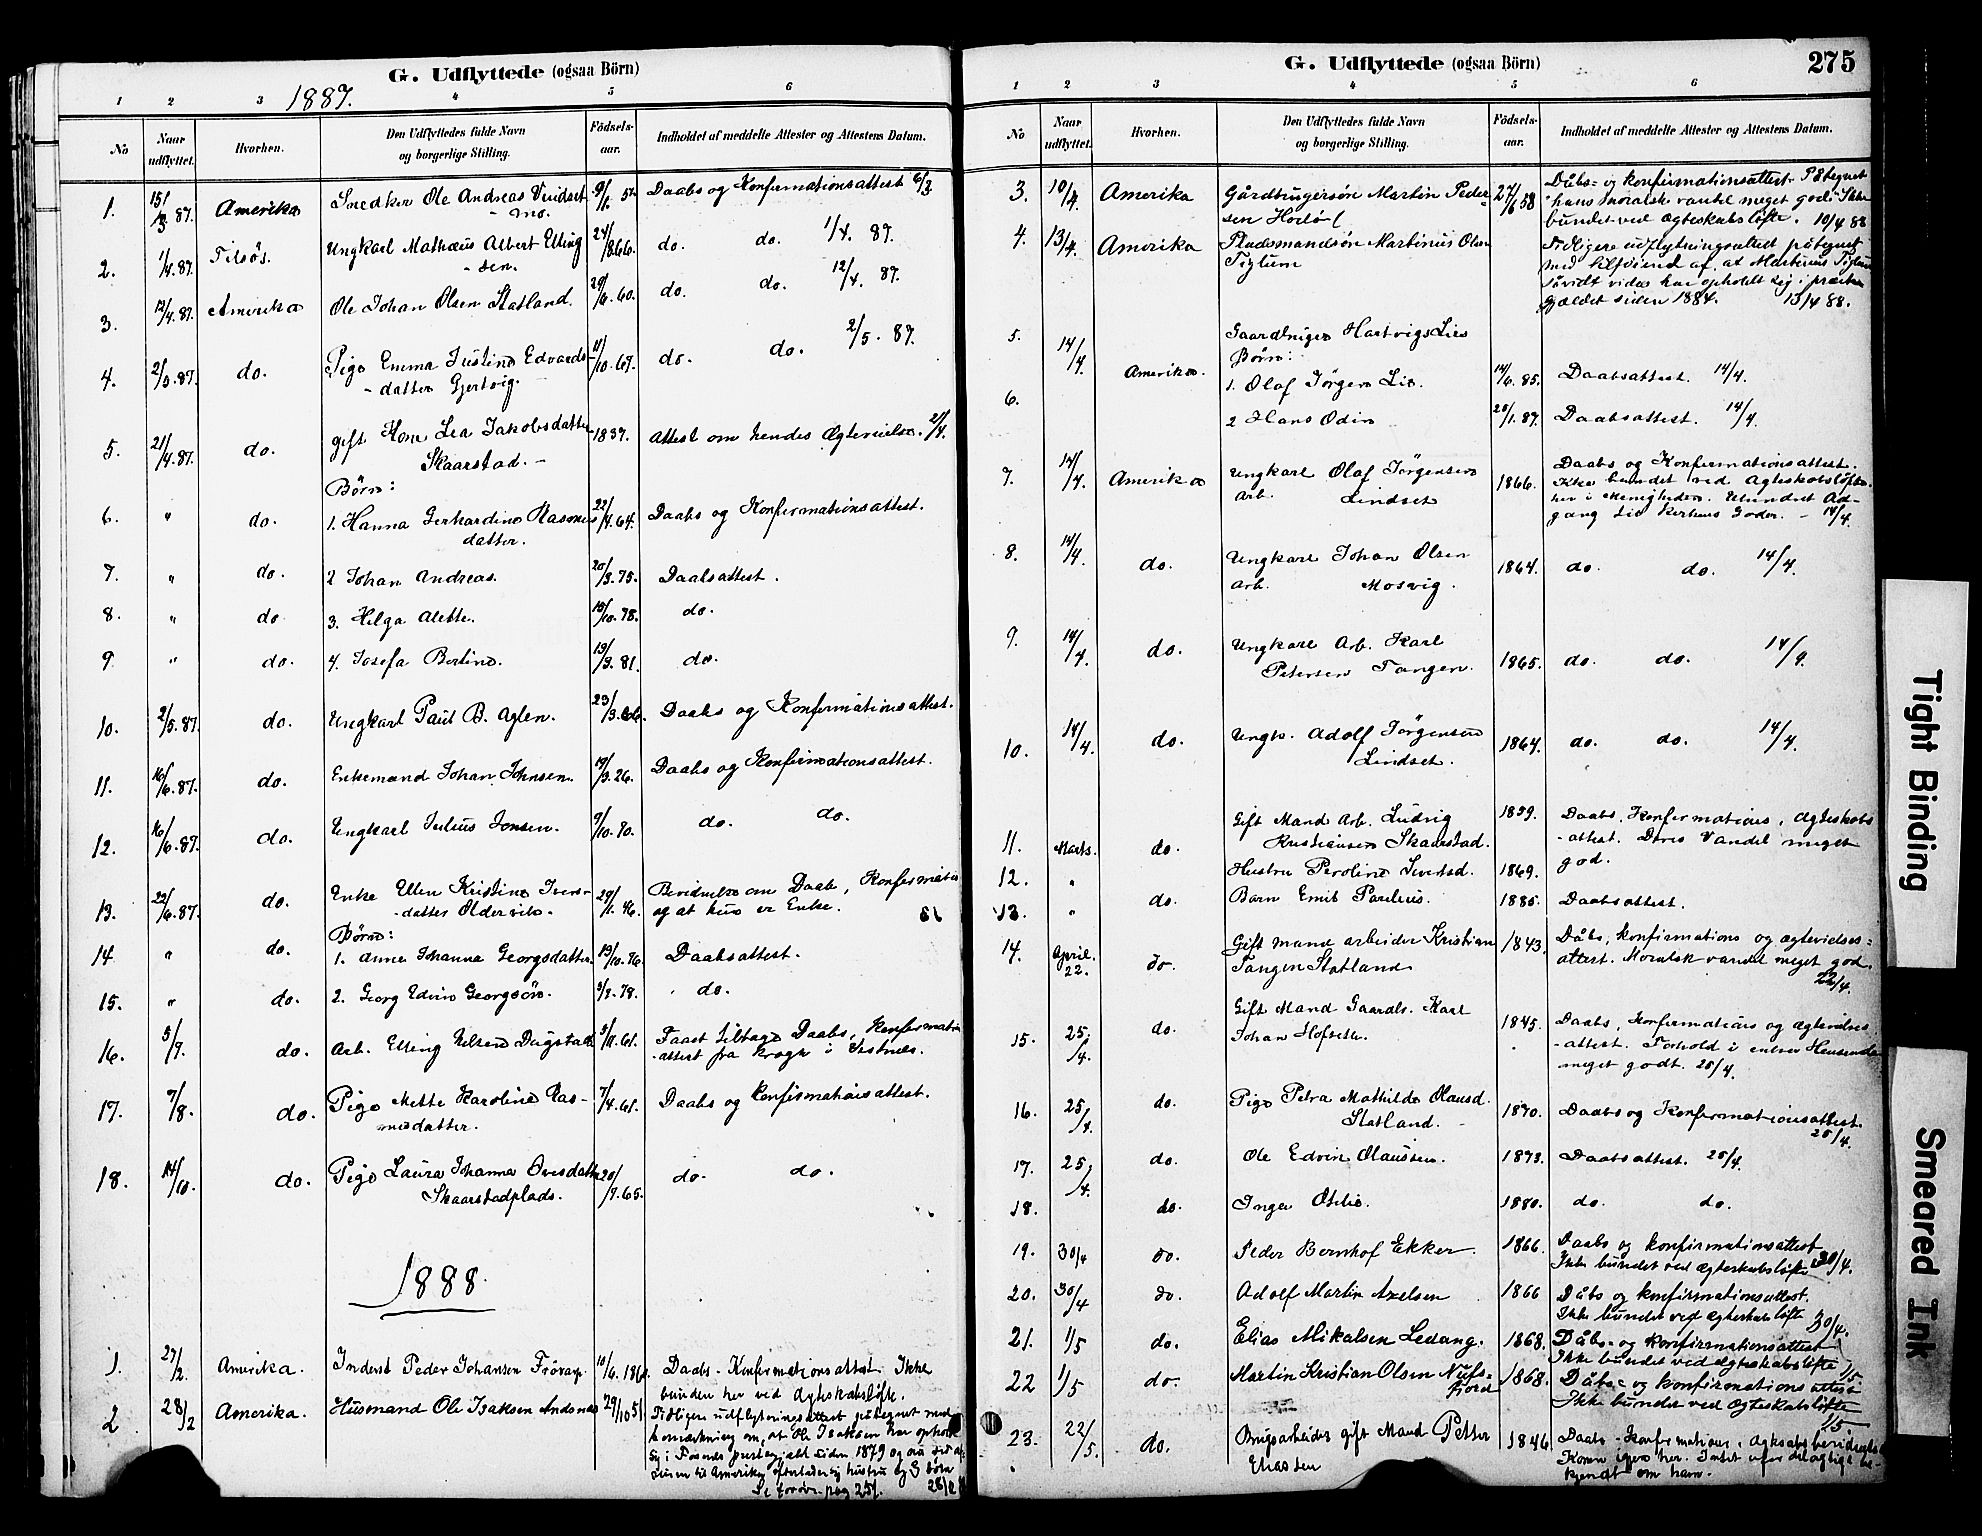 G. Udflyttede (ogsaa Börn)
1887.
1 2 3 4 5 6
No
Naar udflyttet.
Hvorhen.
Den Udflyttedes fulde Navn
og borgerlige Stilling.
Födsels-
aar.
Indholdet af meddelte Attester og Attestens Datum.
1. 15/3 87. Amerika Snedker Ole Andreas Daabs og Konfirmationsattest 6/3
2. 1/4.87. Ungkarl Mathæus Albert Elling 24/8 66. do. do. 1/4. 87.
- sen.
3. 12/4.87. Amerika Ole Johan Olsen Statland. 60. do. do. 12/4. 87.
4. 2/5.87. do. Pige Emma Justine Edvards- 11/10.67. do. do. 2/5. 87.
- datter Gjertvig. -
5. 21/4.87. do. gift Kone Lea Jakobsdatter 1837. Attest om hendes Ægtevielse. 21/4.
Skaarstad. -
Börn:
6. " do. 1. Hanna Gerhardine Rasmus 22/4.64. Daabs og Konfirmationsattest.
datter.
7. " do. 2 Johan Andreas. 20/3.75. Daabsattest.
8. " do. 3. Helga Alette. 18/10.78. do.
9. " do. 4. Josefa Berline. 19/3.81. do.
10. 2/5.87. do. Ungkarl Paul B. Aglen. 23/3.66. Daabs og Konfirmationsattest.
11. 16/6.87. do. Enkemand Johan Johnsen. 19/3.26. Daabs og Konfirmationsattest.
12. 16/6.87. do. Ungkarl Julius Jonsen. 9/10.70. do. do.
13. 22/6.87. do. Enke Ellen Kristine Ivers- 46. Bevidnelse om Daab, Konfirmation
- datter og at hun er Enke.
Börn:
14 " do. 1. Anna Johanna Georgsdatter. 13/10.76. Daabsattest.
15. " do. 2. Georg Edvin Georgsön. 78. do.
16. 5/7. do. Arb. Elling Nelsen 61. Faaet tiltage Daabs, Konfirmation
-attest fra
17. 7/8. do. Pige Mette Karoline Ras- 7/4.61. Daabs og Konfirmationsattest.
musdatter.
18. 14/10. do. Pige Laura Johanna 20/7.65. do. do.
Skaarstadplads.
1888.
1. 27/2. Amerika. Inderst Peder Johansen Daabs- Konfirmationsattest. Ikke
bunden her ved Ægteskabsløfte.
2 28/2 Amerika. Husmand Ole Isaksen Andsnes 29/10 51 Tidligere udflytningsattest påtegnet med
bemærkning om, at Ole Isaksen har opholdt
sig i Fosnes præstegjæld siden 1879
til Amerika efterlader sig hustru og 3 börn
28/2
G. Udflyttede (ogsaa Börn)
275
1 2 3 4 5 6
No
Naar udflyttet.
Hvorhen.
Den Udflyttedes fulde Navn
og borgerlige Stilling.
Födsels-
aar.
Indholdet af meddelte Attester og Attestens Datum.
3. 10/4. Amerika Gårdbrugersøn Martin Peder- 27/6 58 Dåbs- og konfirmationsattest. Påtegnet
sen "hans moralske vandel meget god". Ikke
bundet ved ægteskabsløfte. 10/4 88
4. 13/4. Amerika Pladsmandsøn Martinus Olsen Tidligere udflytningsattest påtegnet
med tilføiend af, at Martinus
såvidt vides har opholdt sig i præste
gjældet siden 1884. 13/4 88.
5. 14/4 Amerika. Gaardbruger Hartvig Lies
Börn:
1. Olaf Jörgen Lie 14/6.85. Daabsattest. 14/4.
6. 2 Hans Odin 87. Daabsattest. 14/4.
7. 14/4. Amerika Ungkarl Olaf Jörgensen 1866. Daabs og Konfirmationsattest.
arb. Lindset Ikke bundet ved Ægteskabsløfte
her i Menigheden. Uhindret Ad-
gang til Kirkens Goder. - 14/4.
8. 14/4. do. Ungkarl Johan Olsen 1864. do. do. 14/4.
arb. Mosvig.
9. 14/4. do. Ungkarl Arb. Karl 1865. do. do.
Petersen Tangen.
10. 14/4. do. Ungk. Adolf Jörgensen 1864. do. do. 14/4.
Lindset.
11. Marts. do. Gift Mand Arb. Ludvig 1859. Daabs, Konfirmations, Ægteskabs
Kristiansen Skaarstad. -attest. Deres Vandel meget
12. " Hustru Peroline Ivertsd. 1869. god.
13. " do. Barn Emil Paulius. 1885. Daabsattest.
14. April. 22. do Gift mand arbeider Kristian 1843. Dåbs, konfirmations og ægtevielses=
Tangen Statland attest. Moralsk vandel meget god.
22/4.
15. 25/4. do. Gift Mand Gaardb. Karl 1845. Daabs, Konfirmations og Ægtevielses
Johan -attest. Forhold i enhver Henseende
meget godt. 25/4.
16. 25/4. do. Pige Petra Mathilde Olausd. 1870. Daabs og Konfirmationsattest.
Statland. - 25/4.
17. 25/4. do. Ole Edvin Olausen. 1873. Daabsattest. 25/4.
18. do. Inga Otilie 1880. do. do.
19. 30/4 do. Peder Bernhof Ekker. 1866. Daabs og konfirmationsattest
Ikke bundet ved ægteskabsløfte 30/4.
20. 30/4 do. Adolf Martin Axelsen 1866 Dåbs og konfirmationsattest.
Ikke bundet ved ægteskabsløfte 30/4.
21. 1/5 do. Elias Mikalsen Ledang. 1868. Dåbs- og konfirmationsattest
Ikke bundet ved ægteskabsløfte 1/5
22 1/5 do. Martin Kristian Olsen Nufs- 1868. Dåbs- og konfirmations attest
fjord Ikke bundet ved ægteskabsløfte
1/5
23. 22/5. do. Brugsarbeider gift Mand Petter 1846 Daabs- Konfirmations.
Eliassen
kjendt om ham.
Tight Binding
Smeared Ink